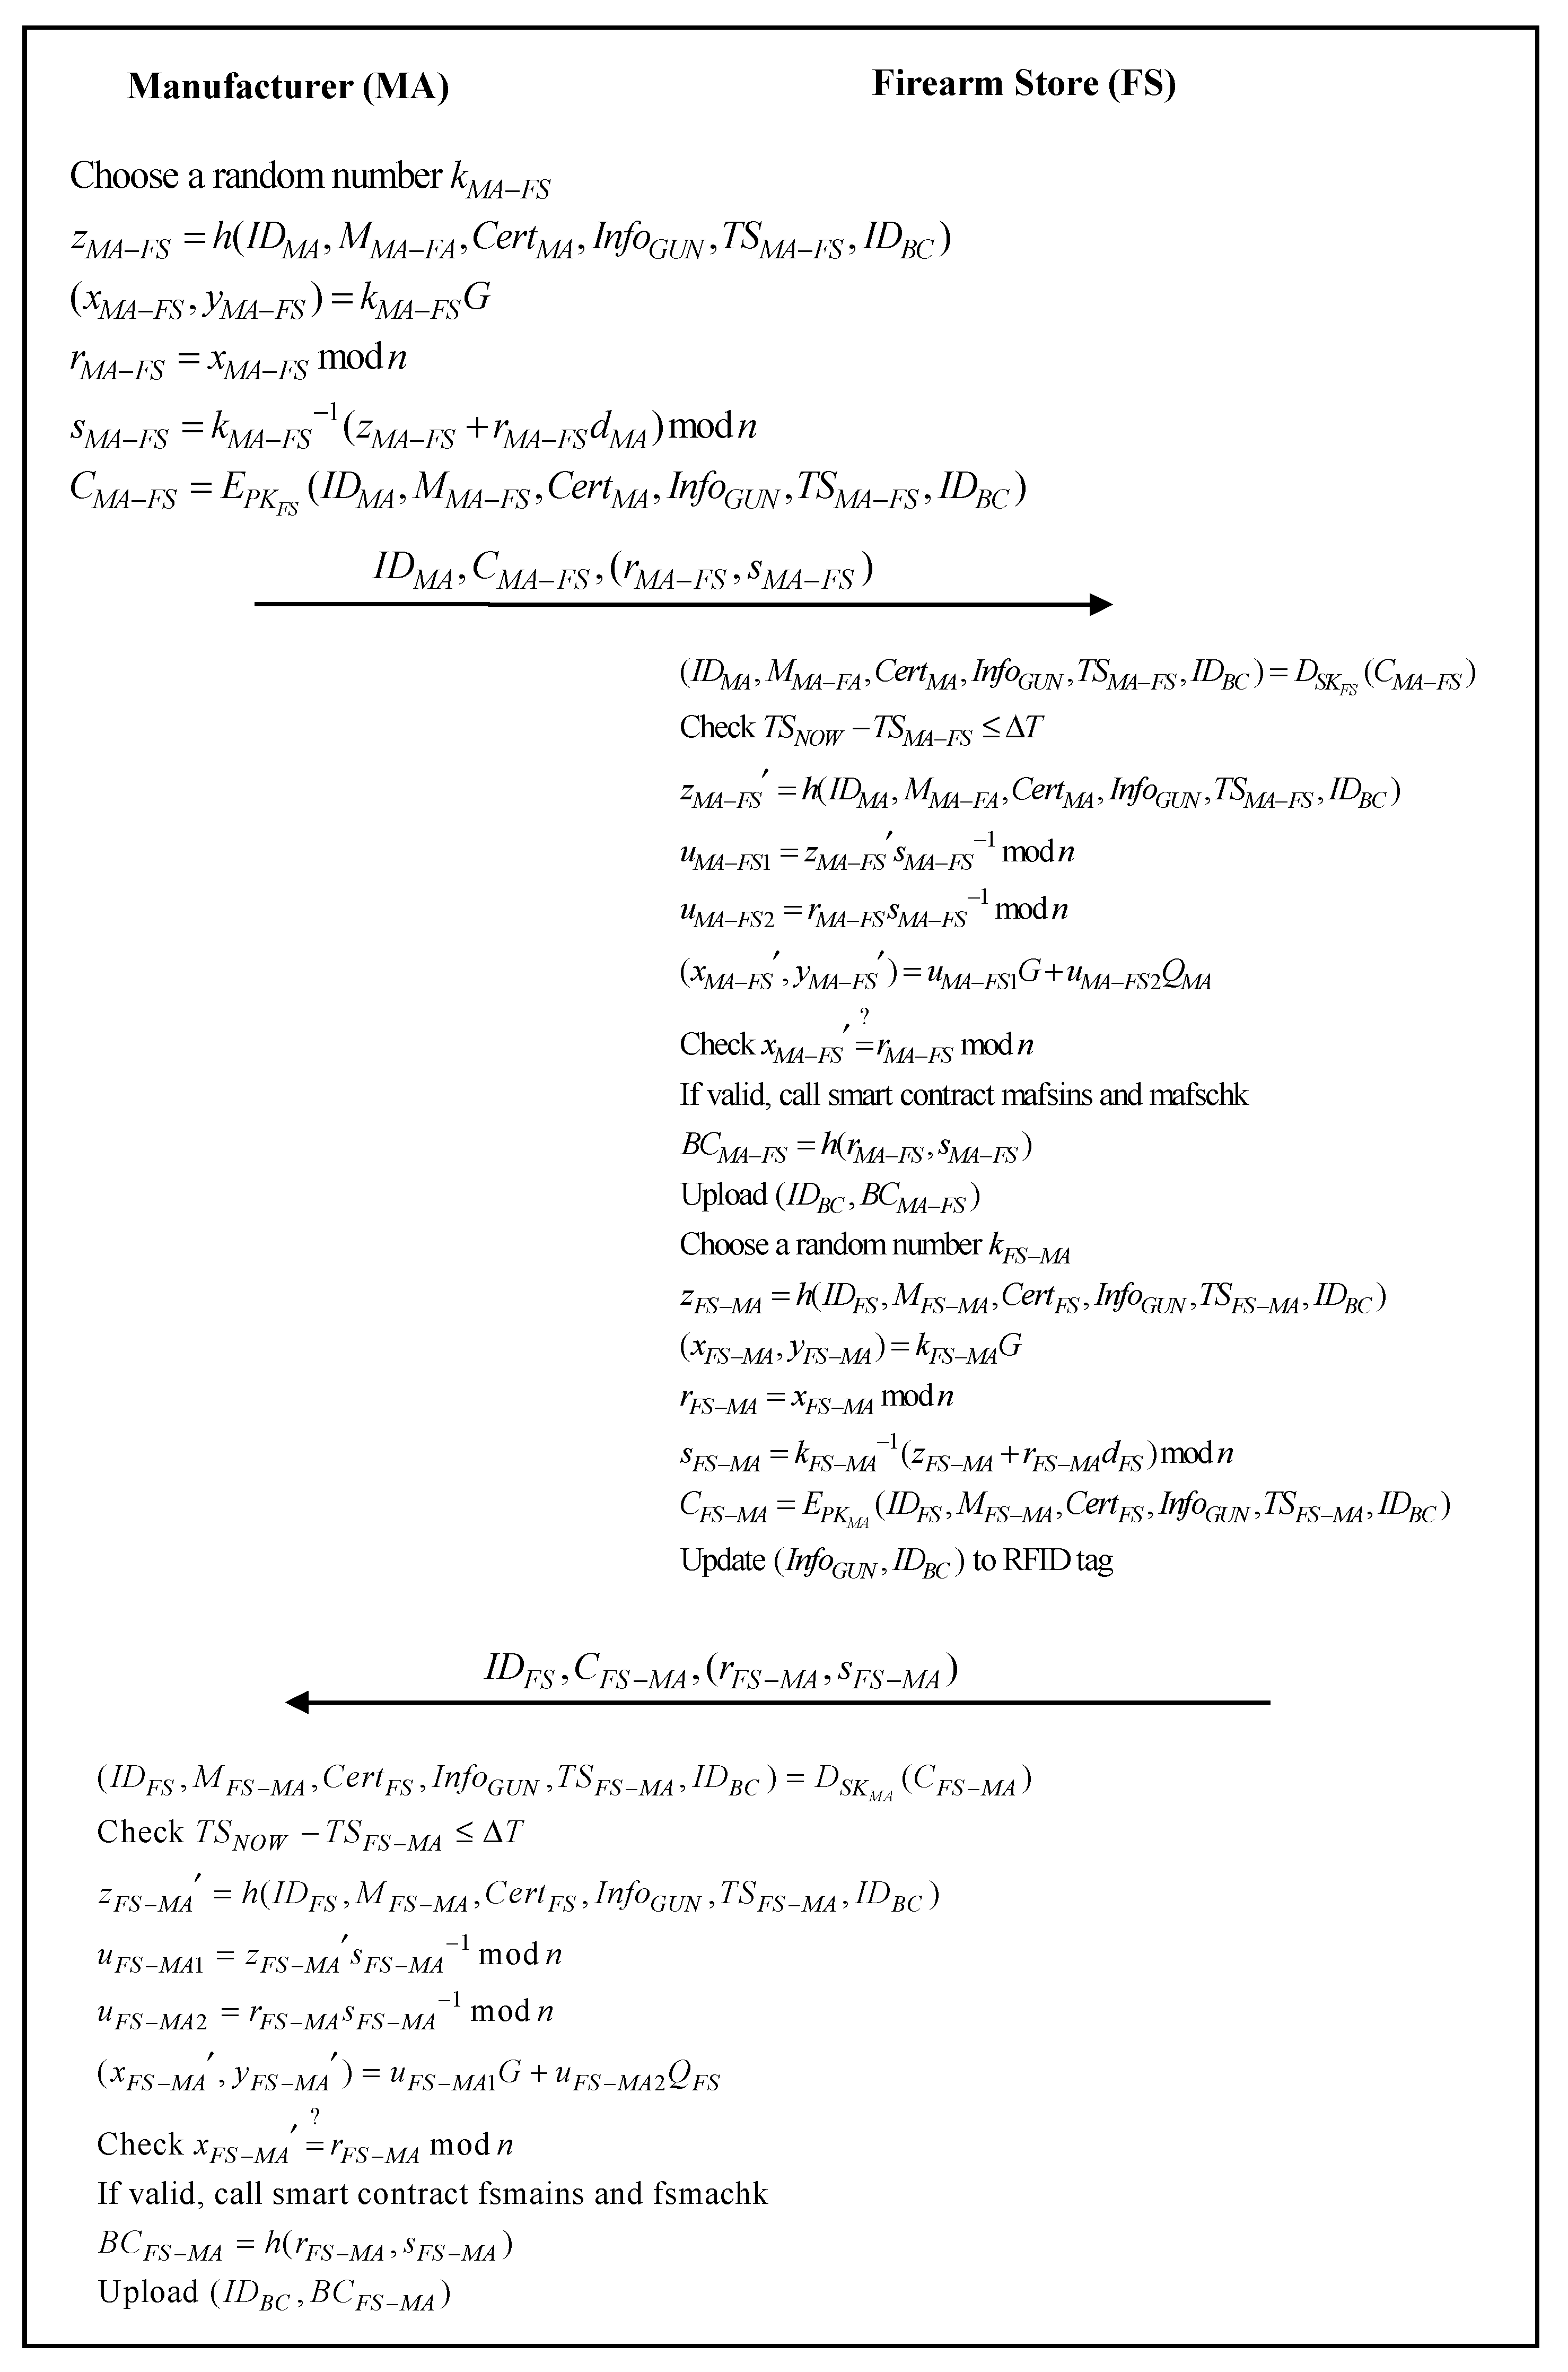 Manufacturer (MA)
Firearm Store (FS)
Choose a random number k_{MA–FS}
z_{MA–FS} = h(ID_{MA}, M_{MA–FA}, Cert_{MA}, Info_{GUN}, TS_{MA–FS}, ID_{BC})
(x_{MA–FS}, y_{MA–FS}) = k_{MA–FS}G
r_{MA–FS} = x_{MA–FS} mod n
s_{MA–FS} = k_{MA–FS}^{–1}(z_{MA–FS} + r_{MA–FS}d_{MA}) mod n
C_{MA–FS} = E_{PK_{FS}}(ID_{MA}, M_{MA–FS}, Cert_{MA}, Info_{GUN}, TS_{MA–FS}, ID_{BC})
ID_{MA}, C_{MA–FS}, (r_{MA–FS}, s_{MA–FS})
(ID_{MA}, M_{MA–FA}, Cert_{MA}, Info_{GUN}, TS_{MA–FS}, ID_{BC}) = D_{SK_{FS}}(C_{MA–FS})
Check TS_{NOW} – TS_{MA–FS} ≤ ΔT
z_{MA–FS}′ = h(ID_{MA}, M_{MA–FA}, Cert_{MA}, Info_{GUN}, TS_{MA–FS}, ID_{BC})
u_{MA–FS1} = z_{MA–FS}′s_{MA–FS}^{–1} mod n
u_{MA–FS2} = r_{MA–FS}s_{MA–FS}^{–1} mod n
(x_{MA–FS}′, y_{MA–FS}′) = u_{MA–FS1}G + u_{MA–FS2}Q_{MA}
Check x_{MA–FS}′ =^{?} r_{MA–FS} mod n
If valid, call smart contract mafsins and mafschk
BC_{MA–FS} = h(r_{MA–FS}, s_{MA–FS})
Upload (ID_{BC}, BC_{MA–FS})
Choose a random number k_{FS–MA}
z_{FS–MA} = h(ID_{FS}, M_{FS–MA}, Cert_{FS}, Info_{GUN}, TS_{FS–MA}, ID_{BC})
(x_{FS–MA}, y_{FS–MA}) = k_{FS–MA}G
r_{FS–MA} = x_{FS–MA} mod n
s_{FS–MA} = k_{FS–MA}^{–1}(z_{FS–MA} + r_{FS–MA}d_{FS}) mod n
C_{FS–MA} = E_{PK_{MA}}(ID_{FS}, M_{FS–MA}, Cert_{FS}, Info_{GUN}, TS_{FS–MA}, ID_{BC})
Update (Info_{GUN}, ID_{BC}) to RFID tag
ID_{FS}, C_{FS–MA}, (r_{FS–MA}, s_{FS–MA})
(ID_{FS}, M_{FS–MA}, Cert_{FS}, Info_{GUN}, TS_{FS–MA}, ID_{BC}) = D_{SK_{MA}}(C_{FS–MA})
Check TS_{NOW} – TS_{FS–MA} ≤ ΔT
z_{FS–MA}′ = h(ID_{FS}, M_{FS–MA}, Cert_{FS}, Info_{GUN}, TS_{FS–MA}, ID_{BC})
u_{FS–MA1} = z_{FS–MA}′s_{FS–MA}^{–1} mod n
u_{FS–MA2} = r_{FS–MA}s_{FS–MA}^{–1} mod n
(x_{FS–MA}′, y_{FS–MA}′) = u_{FS–MA1}G + u_{FS–MA2}Q_{FS}
Check x_{FS–MA}′ =^{?} r_{FS–MA} mod n
If valid, call smart contract fsmains and fsmachk
BC_{FS–MA} = h(r_{FS–MA}, s_{FS–MA})
Upload (ID_{BC}, BC_{FS–MA})